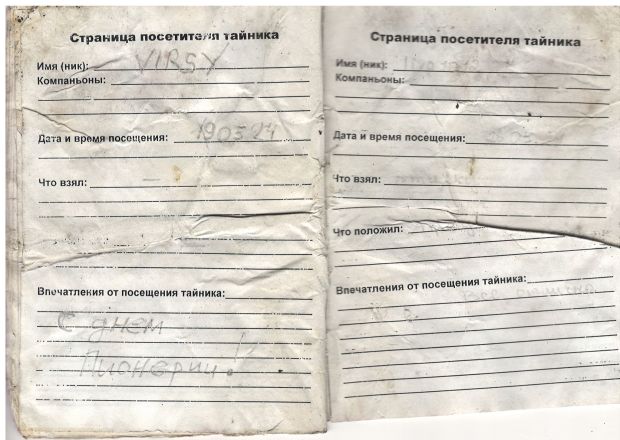 Страница посетителя тайника
Имя (ник): VIRSY
Компаньоны:
Дата и время посещения: 190524
Что взял:
Впечатления от посещения тайника:
С днем
Пионерии!
Страница посетителя тайника
Имя (ник):
Компаньоны:
Дата и время посещения:
Что взял:
Что положил:
Впечатления от посещения тайника: